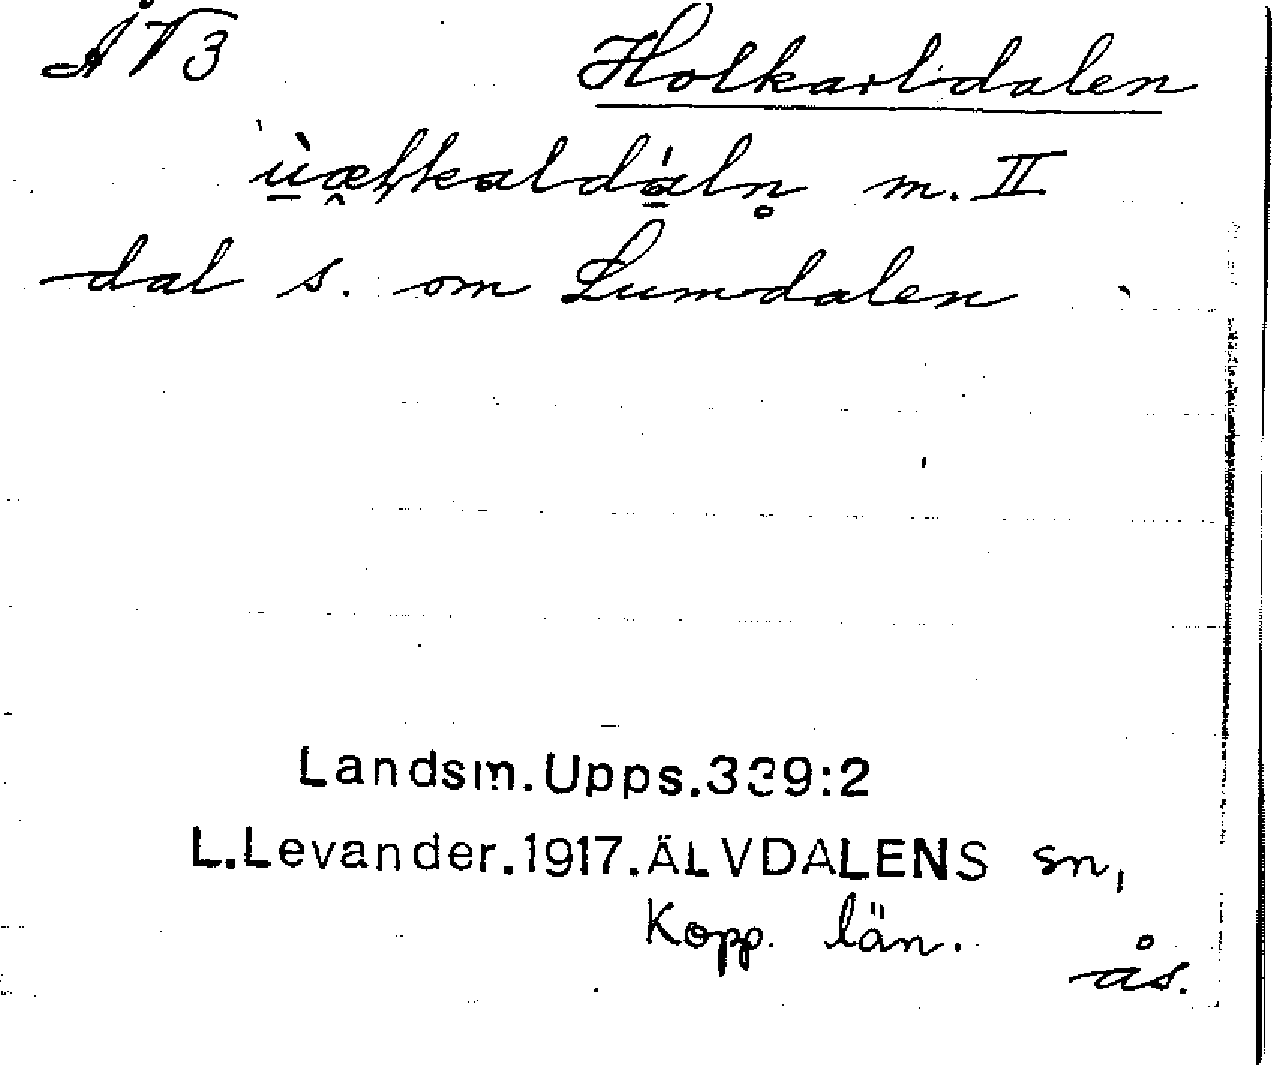 Åv3 Holkarldalen
m. II
dal s. om Lumdalen
Landsm.Upps.339:2
L.Levander.1917.ÄLVDALENS sn,
Kopp. län.
ås.